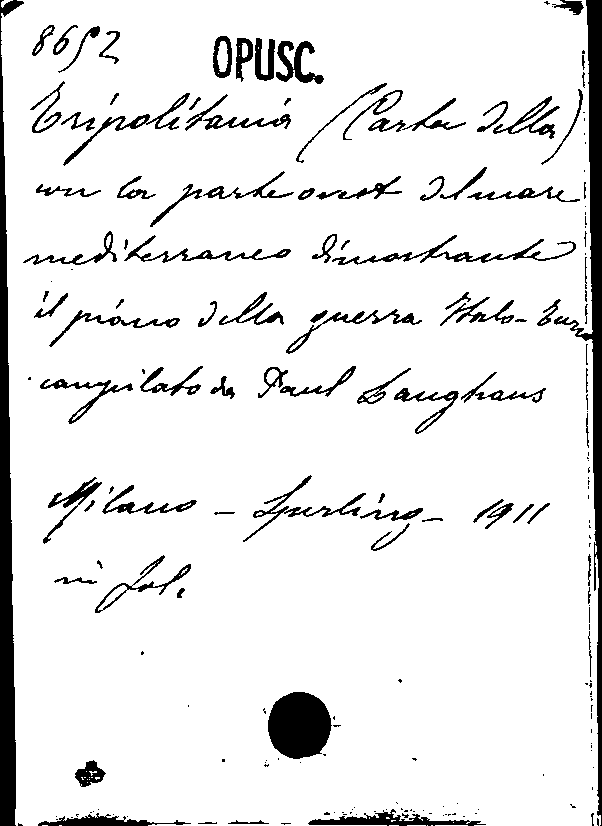 8652 OPUSC.
Tripolitania (Carta della)
con la parte ovest del mare
mediterraneo dimostrante
il piano della guerra Italo-Turca
compilato da Paul Langhans
Milano - Sperling - 1911
in fol.